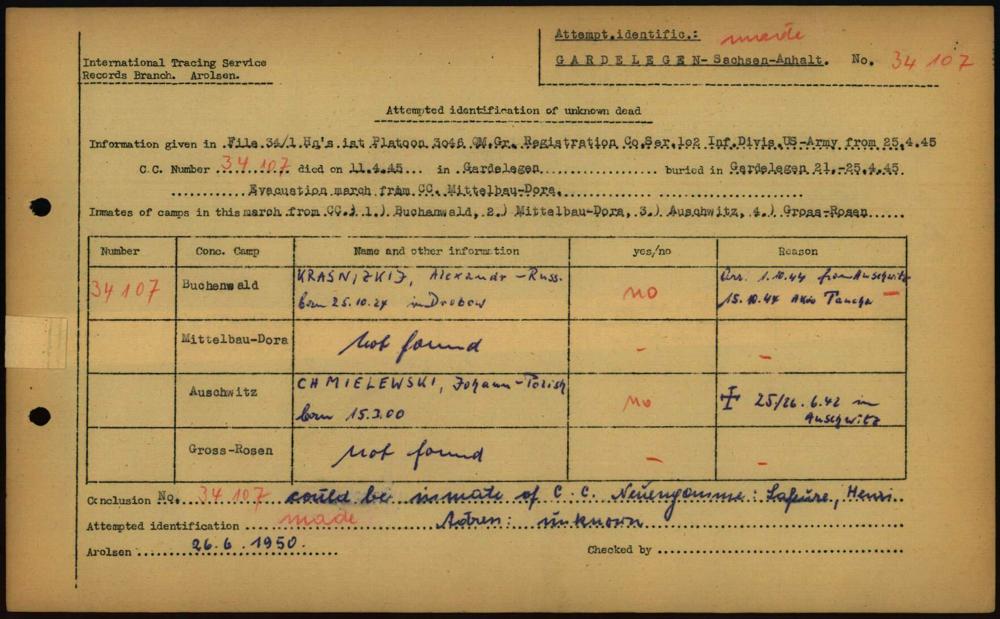 Attempt.identific.: made
International Tracing Service
Records Branch. Arolsen.
GARDELEGEN-Sachsen-Anhalt. No. 34 107
Attempted identification of unknown dead
Information given in File 34/1 Hq's 1st Platoon 3046 QM.Gr. Registration Co.Ser.102 Inf.Divis.US-Army from 25.4.45
C.C. Number 34 107 died on 11.4.45 in Gardelegen buried in Gardelegen 21.-25.4.45
Evacuation march from CC. Mittelbau-Dora.
Inmates of camps in this march from CC.) 1.) Buchenwald, 2.) Mittelbau-Dora, 3.) Auschwitz, 4.) Gross-Rosen
Number Conc. Camp Name and other information yes/no Reason
34 107 Buchenwald KRASNIZKIJ, Alexandr - Russ. no Arr. 1.10.44 from Auschwitz
born 25.10.24 in Drobow 15.10.44 Akdo Taucha -
Mittelbau-Dora not found - -
Auschwitz CHMIELEWSKI, Johann - Polish no 25/26.6.42 in
born 15.3.00 Auschwitz
Gross-Rosen not found - -
Conclusion No. 34 107 could be inmate of C.C. Neuengamme: Henri
Attempted identification made unknown
Arolsen 26.6.1950. Checked by